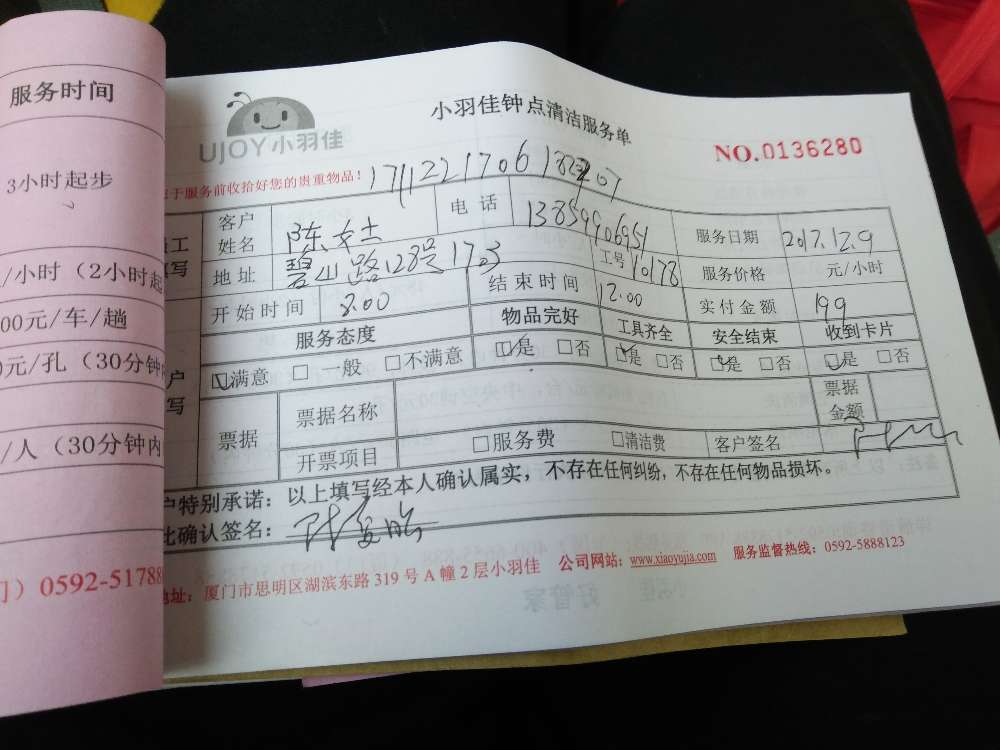 服务时间
3小时起步
/小时（2小时起
00元/车/趟
元/孔（30分钟
/人（30分钟内
）0592-51788
UJOY小羽佳
小羽佳钟点清洁服务单
NO.0136280
于服务前收拾好您的贵重物品！
客户姓名 陈女士 电话 13859906951 服务日期 2017.12.9
地址 碧山路128号1703 工号 10178 服务价格 元/小时
开始时间 8.00 结束时间 12.00 实付金额 199
服务态度 物品完好 工具齐全 安全结束 收到卡片
☑满意 □一般 □不满意 ☑是 □否 ☑是 □否 ☑是 □否 ☑是 □否
票据 票据名称 票据金额
开票项目 □服务费 □清洁费 客户签名
户特别承诺：以上填写经本人确认属实，不存在任何纠纷，不存在任何物品损坏。
比确认签名：
地址：厦门市思明区湖滨东路319号A幢2层小羽佳 公司网站：www.xiaoyujia.com 服务监督热线：0592-5888123